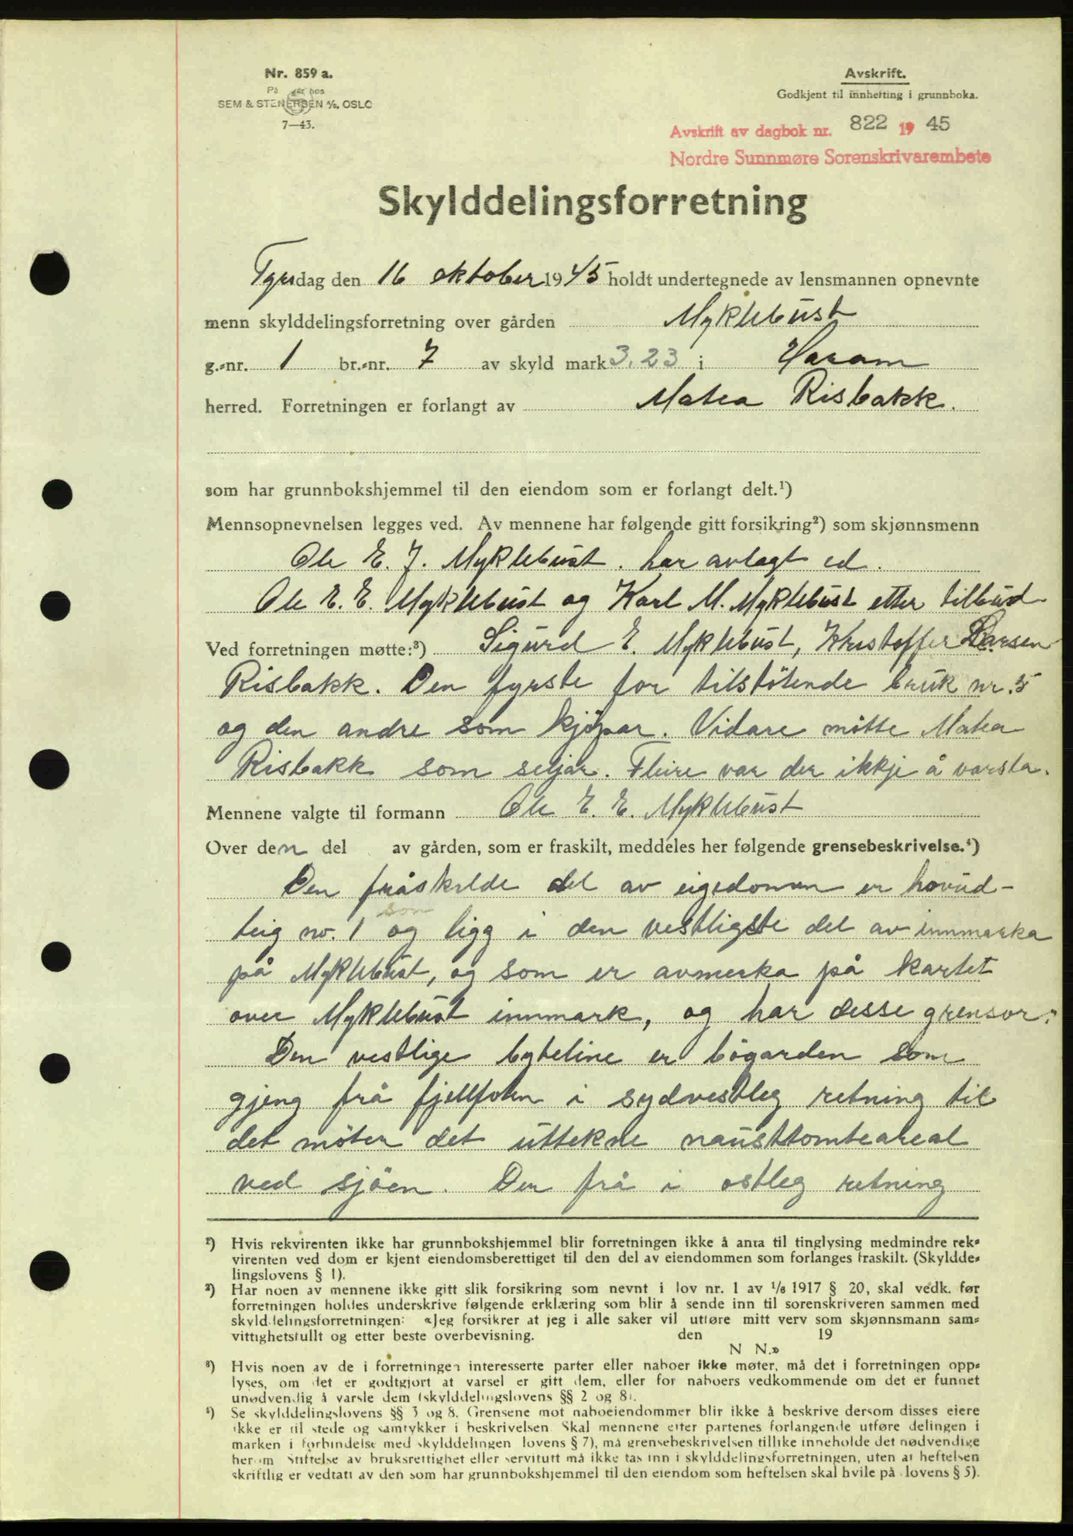 Nr. 859 a.
På lager hos
SEM & STENERSEN A/S, OSLO
7—43.
Avskrift.
Godkjent til innhefting i grunnboka.
Avskrift av dagbok nr. 822 1945
Nordre Sunnmøre Sorenskrivarembete
Skylddelingsforretning
Tysdag den 16 oktober 1945 holdt undertegnede av lensmannen opnevnte
menn skylddelingsforretning over gården Myklebust
g.-nr. 1 br.-nr. 7 av skyld mark 3.23 i Haram
herred. Forretningen er forlangt av Matea Risbakk.
som har grunnbokshjemmel til den eiendom som er forlangt delt.¹)
Mennsopnevnelsen legges ved. Av mennene har følgende gitt forsikring²) som skjønnsmenn
Ole E. J. Myklebust. har avlagt ed.
Ole E. E. Myklebust og Karl M. Myklebust etter tilbud
Ved forretningen møtte:³) Sigurd E. Myklebust, Khristoffer Larsen
Risbakk. Den fyrste for tilstötende bruk nr. 5
og den andre som kjöpar. Vidare mötte Matea
Risbakk som seljar. Fleire var der ikkje å varsla.
Mennene valgte til formann Ole E. E. Myklebust
Over den del av gården, som er fraskilt, meddeles her følgende grensebeskrivelse.⁴)
Den fråskilde del av eigedomen er hovud-
teig no. 1 som og ligg i den vestligste del av innmarka
på Myklebust, og som er avmerka på kartet
over Myklebust innmark, og har desse grensor:
Den vestlige byteline er bögarden som
gjeng frå fjellfoten i sydvestleg retning til
det möter det uttekne nausttomteareal
ved sjöen. Der frå i ostleg retning
¹) Hvis rekvirenten ikke har grunnbokshjemmel blir forretningen ikke å anta til tinglysing medmindre rek-
virenten ved dom er kjent eiendomsberettiget til den del av eiendommen som forlanges fraskilt. (Skyldde-
lingslovens § 1).
²) Har noen av mennene ikke gitt slik forsikring som nevnt i lov nr. 1 av 1/6 1917 § 20, skal vedk. før
forretningen holdes underskrive følgende erklæring som blir å sende inn til sorenskriveren sammen med
skylddelingsforretningen: «Jeg forsikrer at jeg i alle saker vil utføre mitt verv som skjønnsmann sam-
vittighetsfullt og etter beste overbevisning. den 19
N N.»
³) Hvis noen av de i forretningen interesserte parter eller naboer ikke møter, må det i forretningen opp-
lyses, om det er godtgjort at varsel er gitt dem, eller for naboers vedkommende om det er funnet
unødvendig å varsle dem (skylddelingslovens §§ 2 og 8).
⁴) Se skylddelingslovens §§ 3 og 8. Grensene mot naboeiendommer blir ikke å beskrive dersom disses eiere
ikke er til stede og samtykker i beskrivelsen. Skal mennene etter partenes forlangende utføre delingen i
marken i forbindelse med skylddelingen (lovens § 7), må grensebeskrivelsen tillike inneholde det nødvendige
her om. Stiftelse av bruksrettighet eller servitutt må ikke tas inn i skylddelingsforretningen, uten at heftelsen
skriftlig er vedtatt av den som har grunnbokshjemmel til den eiendom som heftelsen skal hvile på (lovens § 5).